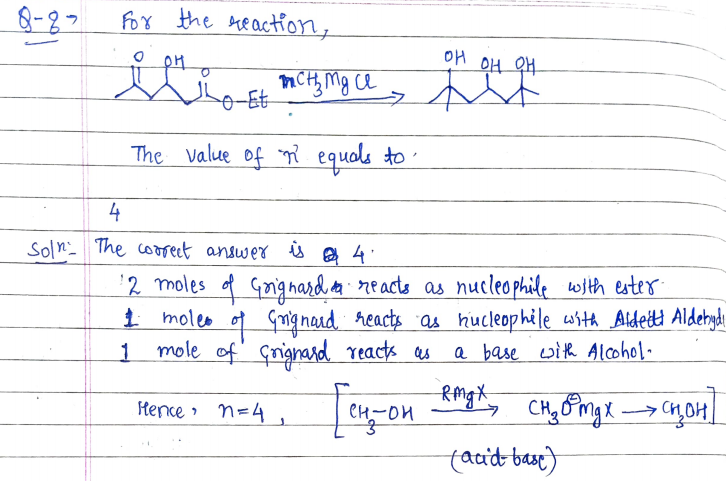 Q-8→ For the reaction,
O OH O O-Et nCH3MgCl OH OH OH
The value of 'n' equals to.
4
Soln:- The correct answer is 4.
2 moles of Grignard reacts as nucleophile with ester.
1 moles of Grignard reacts as nucleophile with Aldehyde
1 mole of Grignard reacts as a base with Alcohol.
Hence, n=4, [CH3-OH RMgX CH3O⊖MgX → CH3OH]
(acid-base)